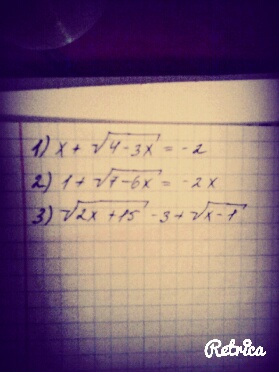 1) x + √4-3x = -2
2) 1 + √7-6x = -2x
3) √2x+15 - 3 + √x-1
Retrica